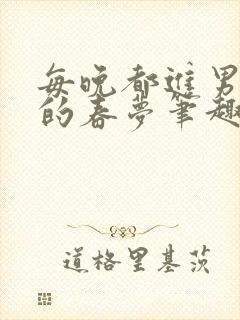 每晚都进男
的春梦笔趣
道格里基茨